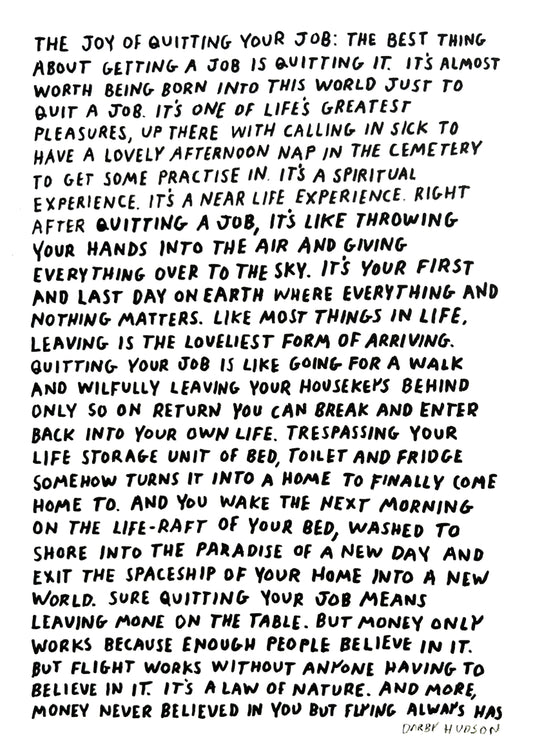 THE JOY OF QUITTING YOUR JOB: THE BEST THING
ABOUT GETTING A JOB IS QUITTING IT. IT'S ALMOST
WORTH BEING BORN INTO THIS WORLD JUST TO
QUIT A JOB. IT'S ONE OF LIFE'S GREATEST
PLEASURES, UP THERE WITH CALLING IN SICK TO
HAVE A LOVELY AFTERNOON NAP IN THE CEMETERY
TO GET SOME PRACTISE IN. IT'S A SPIRITUAL
EXPERIENCE. IT'S A NEAR LIFE EXPERIENCE. RIGHT
AFTER QUITTING A JOB, IT'S LIKE THROWING
YOUR HANDS INTO THE AIR AND GIVING
EVERYTHING OVER TO THE SKY. IT'S YOUR FIRST
AND LAST DAY ON EARTH WHERE EVERYTHING AND
NOTHING MATTERS. LIKE MOST THINGS IN LIFE,
LEAVING IS THE LOVELIEST FORM OF ARRIVING.
QUITTING YOUR JOB IS LIKE GOING FOR A WALK
AND WILFULLY LEAVING YOUR HOUSEKEYS BEHIND
ONLY SO ON RETURN YOU CAN BREAK AND ENTER
BACK INTO YOUR OWN LIFE. TRESPASSING YOUR
LIFE STORAGE UNIT OF BED, TOILET AND FRIDGE
SOMEHOW TURNS IT INTO A HOME TO FINALLY COME
HOME TO. AND YOU WAKE THE NEXT MORNING
ON THE LIFE-RAFT OF YOUR BED, WASHED TO
SHORE INTO THE PARADISE OF A NEW DAY AND
EXIT THE SPACESHIP OF YOUR HOME INTO A NEW
WORLD. SURE QUITTING YOUR JOB MEANS
LEAVING MONE ON THE TABLE. BUT MONEY ONLY
WORKS BECAUSE ENOUGH PEOPLE BELIEVE IN IT.
BUT FLIGHT WORKS WITHOUT ANYONE HAVING TO
BELIEVE IN IT. IT'S A LAW OF NATURE. AND MORE,
MONEY NEVER BELIEVED IN YOU BUT FLYING ALWAYS HAS
DARBY HUDSON